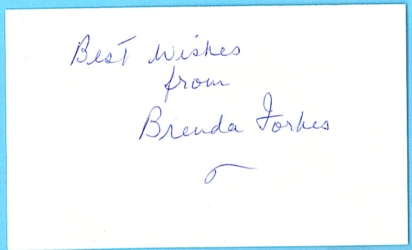 Best Wishes
from
Brenda Forbes